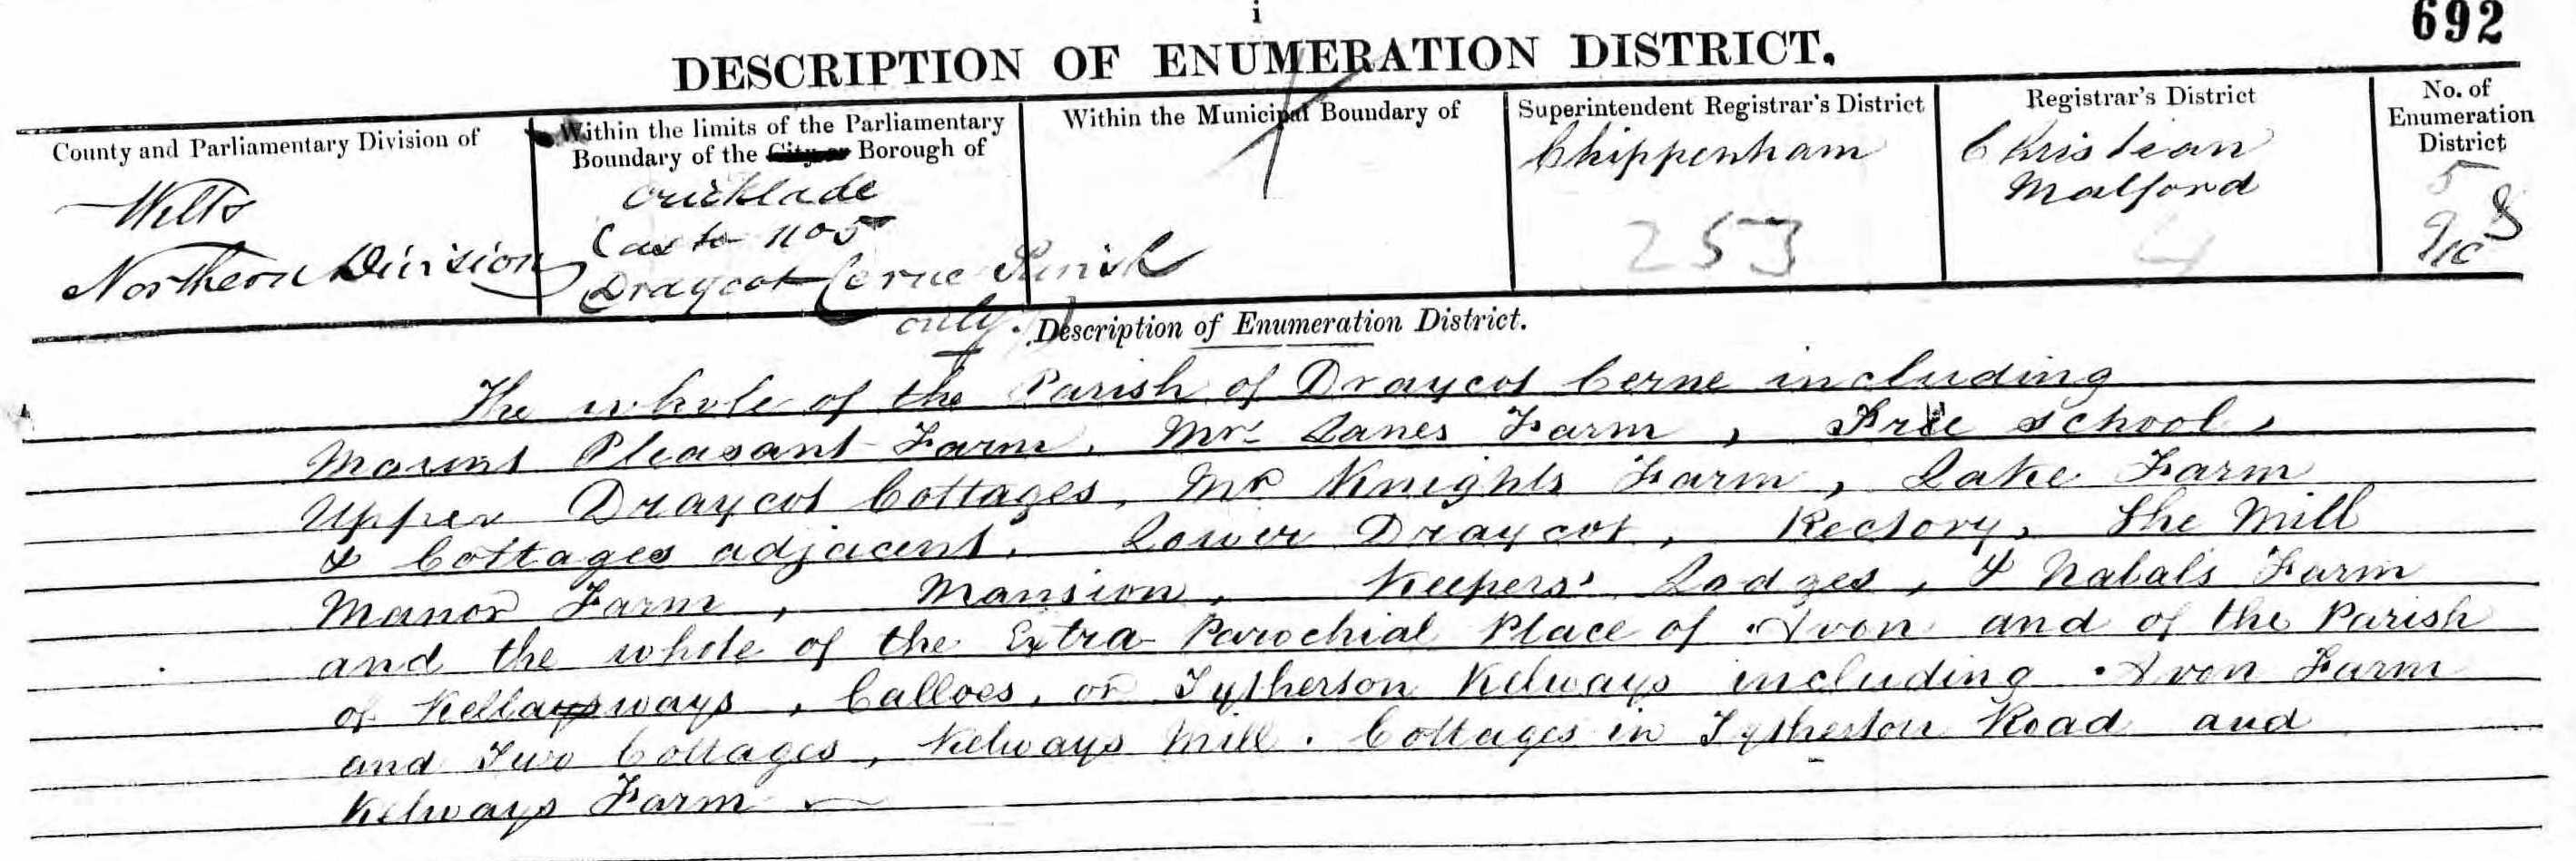 i
692
DESCRIPTION OF ENUMERATION DISTRICT.
County and Parliamentary Division of
Wilts
Northern Division
Within the limits of the Parliamentary
Boundary of the City or Borough of
Cricklade
(as to No 5
Draycot Cerne Parish
only.)
Within the Municipal Boundary of
Superintendent Registrar's District
Chippenham
253
Registrar's District
Christian
Malford
4
No. of
Enumeration
District
5
Description of Enumeration District.
The whole of the Parish of Draycot Cerne including
Mount Pleasant Farm, Mrs Lanes Farm, Free School,
Upper Draycot Cottages, Mr Knights Farm, Lake Farm
& Cottages adjacent, Lower Draycot, Rectory, The Mill
Manor Farm, Mansion, Keepers' Lodges, & Nabals Farm
and the whole of the Extra-Parochial Place of Avon and of the Parish
of Kellaysways, Calloes, or Tytherton Kelways including Avon Farm
and Two Cottages, Kelways Mill. Cottages in Tytherton Road and
Kelways Farm